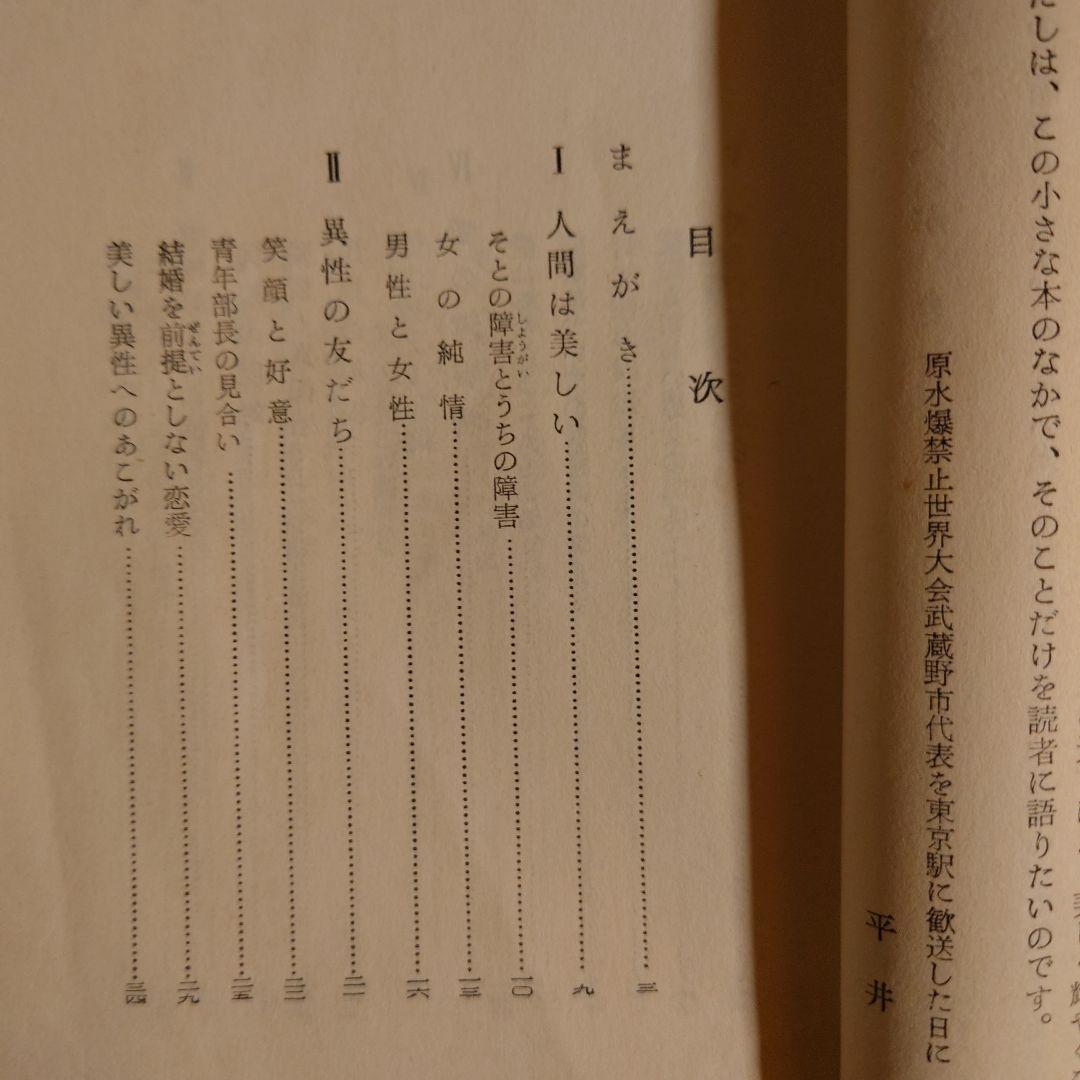 は、この小さな本のなかで、そのことだけを読者に語りたいのです。
原水爆禁止世界大会武蔵野市代表を東京駅に歓送した日に
平井
目次
まえがき……三
Ⅰ 人間は美しい……九
そとの障害とうちの障害……一〇
しようがい
女の純情……一三
男性と女性……一六
Ⅱ 異性の友だち……二一
笑顔と好意……二二
青年部長の見合い……二五
結婚を前提としない恋愛……二九
ぜんてい
美しい異性へのあこがれ……三四